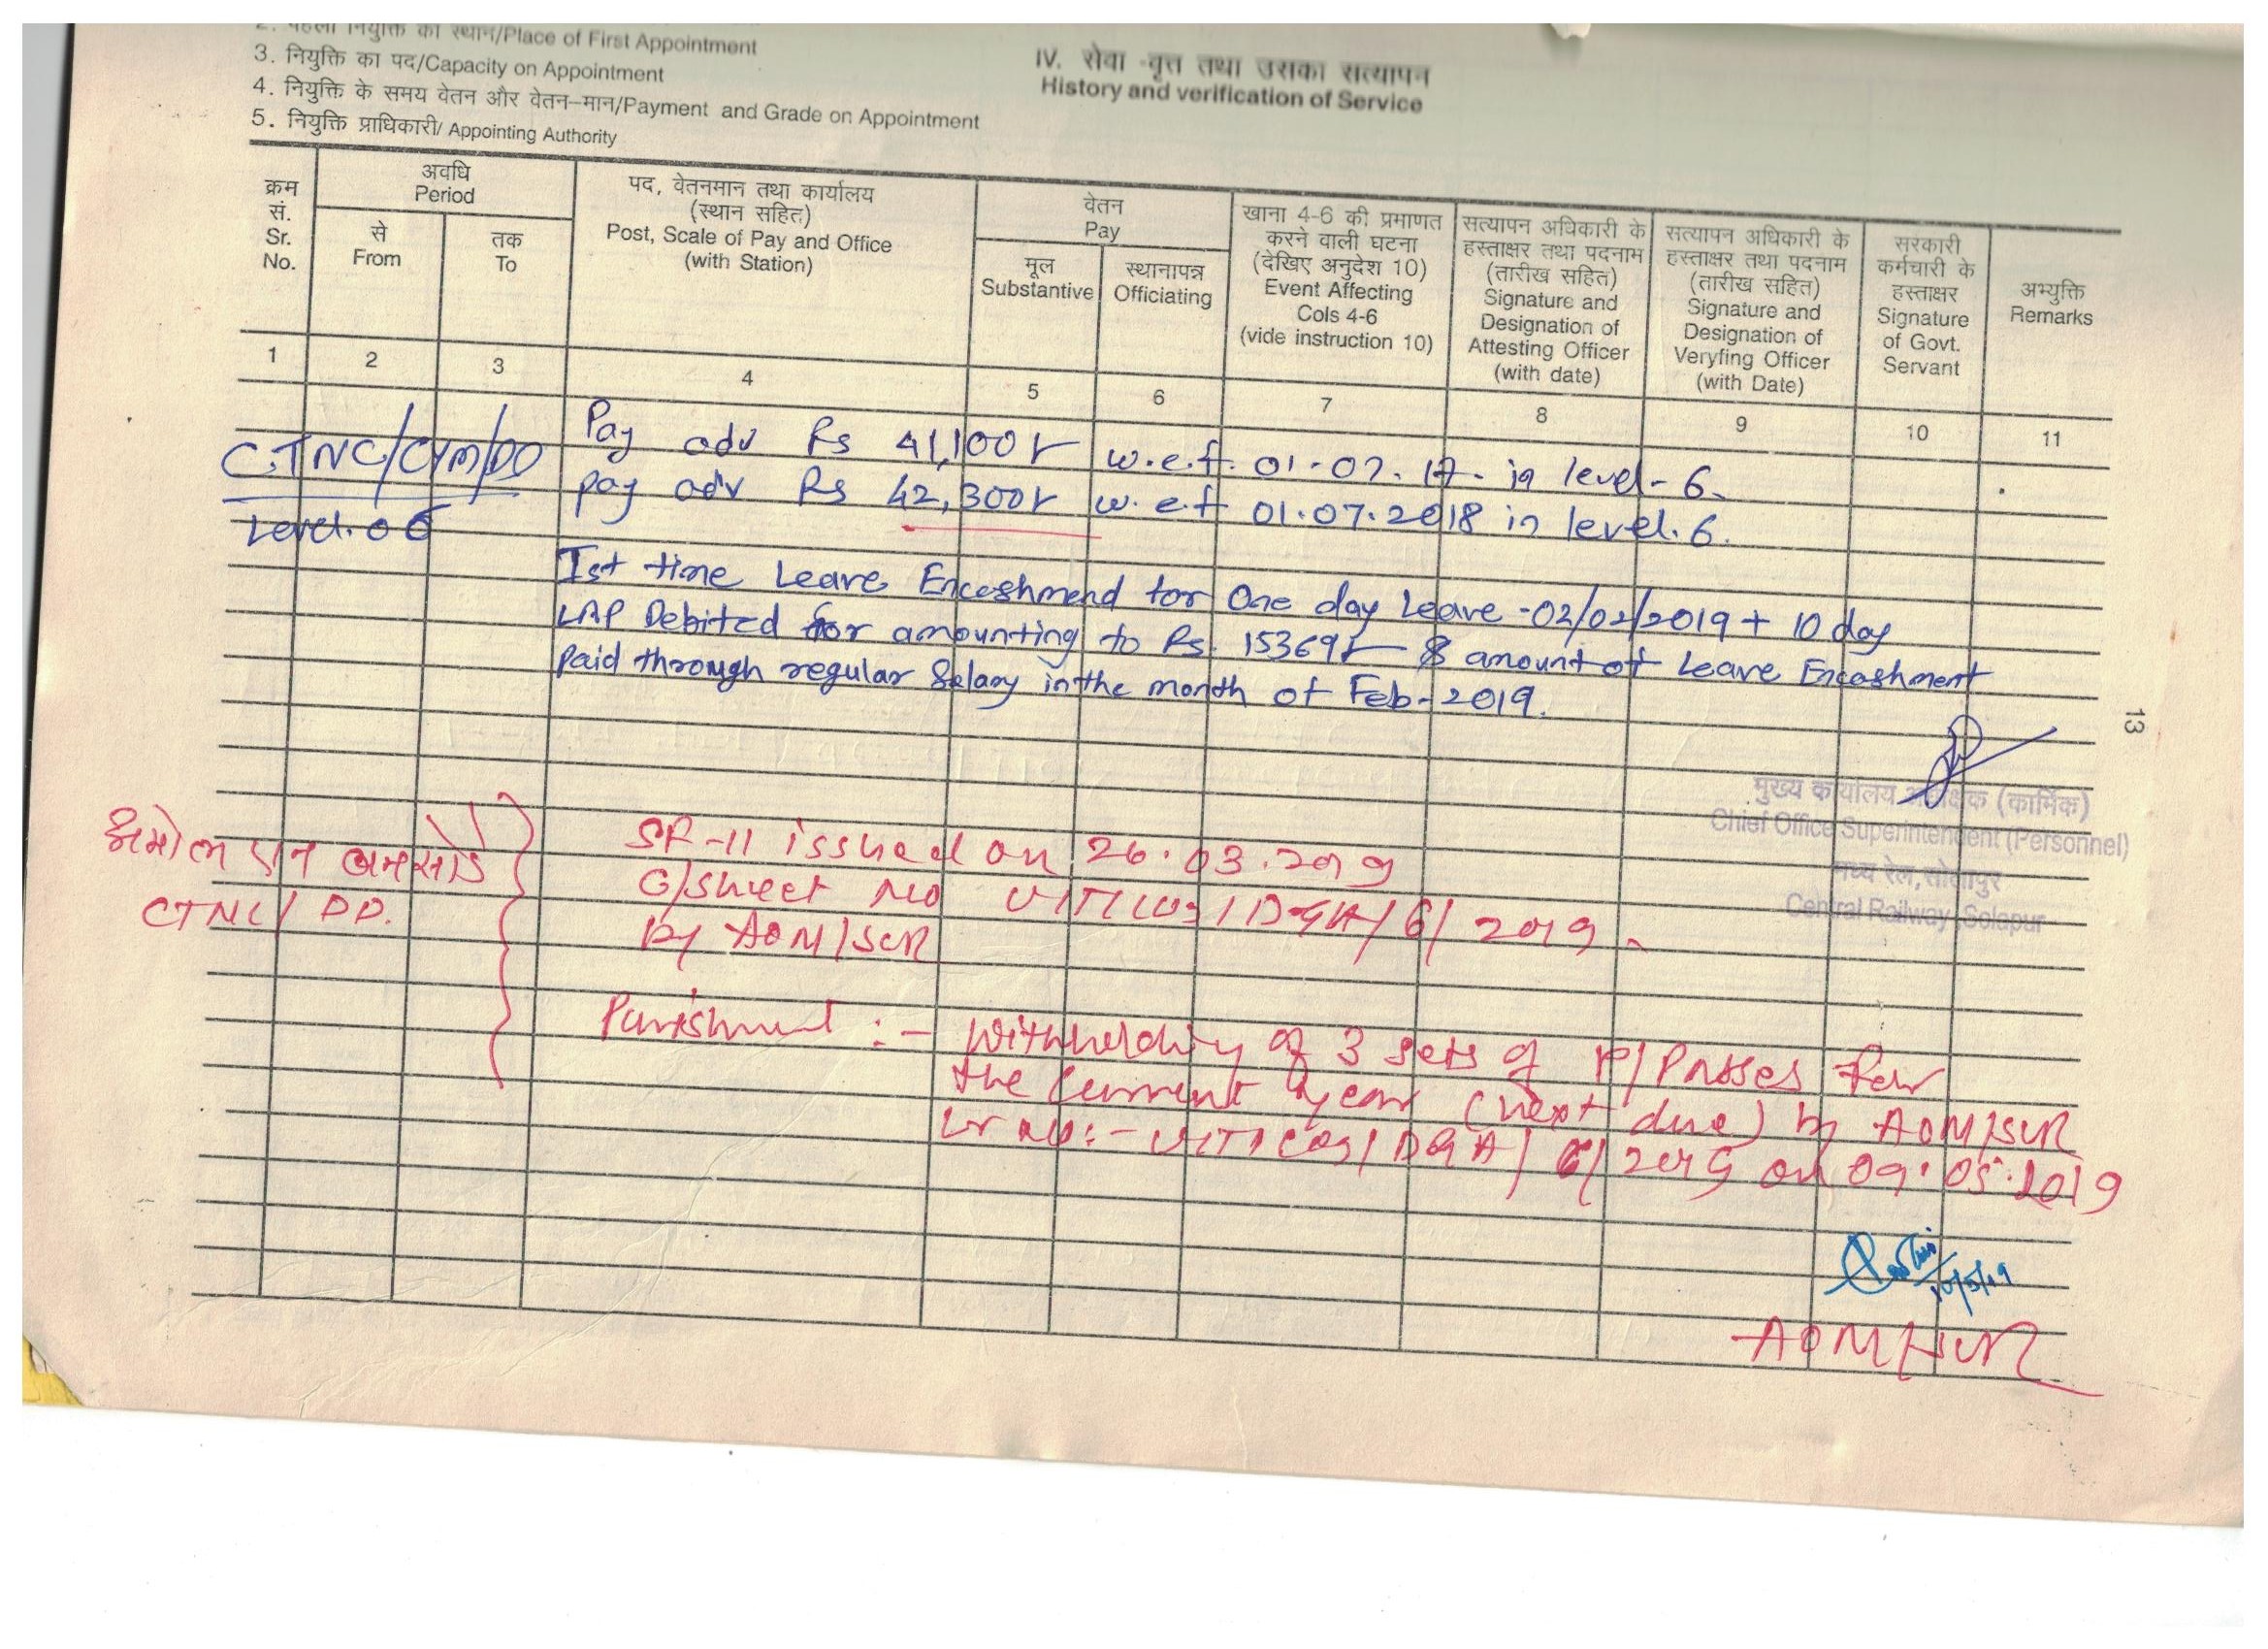 2. पहली नियुक्ति का स्थान/Place of First Appointment
3. नियुक्ति का पद/Capacity on Appointment
4. नियुक्ति के समय वेतन और वेतन-मान/Payment and Grade on Appointment
5. नियुक्ति प्राधिकारी/ Appointing Authority
IV. सेवा -वृत्त तथा उसका सत्यापन
History and verification of Service
क्रम सं. Sr. No.
अवधि Period
से From
तक To
पद, वेतनमान तथा कार्यालय (स्थान सहित) Post, Scale of Pay and Office (with Station)
वेतन Pay
मूल Substantive
स्थानापन्न Officiating
खाना 4-6 की प्रमाणत करने वाली घटना (देखिए अनुदेश 10) Event Affecting Cols 4-6 (vide instruction 10)
सत्यापन अधिकारी के हस्ताक्षर तथा पदनाम (तारीख सहित) Signature and Designation of Attesting Officer (with date)
सत्यापन अधिकारी के हस्ताक्षर तथा पदनाम (तारीख सहित) Signature and Designation of Veryfing Officer (with Date)
सरकारी कर्मचारी के हस्ताक्षर Signature of Govt. Servant
अभ्युक्ति Remarks
1 2 3 4 5 6 7 8 9 10 11
CTNC/CYM/DD
Level.06
Pay adv Rs 41,100/- w.e.f. 01.07.17. in level-6.
pay adv Rs 42,300/- w.e.f 01.07.2018 in level.6.
Ist time Leave Encashmend for One day Leave -02/02/2019 + 10 day
LAP Debited for amounting to Rs. 15369/- & amount of Leave Encashment
paid through regular Salary in the month of Feb-2019.
13
मुख्य कार्यालय अधीक्षक (कार्मिक)
Chief Office Superintendent (Personnel)
मध्य रेल, सोलापुर
Central Railway, Solapur
CTNC/ DD.
SR-11 issued on 26.03.2019
C/sheet No /D&A/6/ 2019
by AOM/SUR
Punishment :- Withholding of 3 sets of P/Passes for
the current year (next due) by AOM/SUR
Lr No:- /D&A/ 6/ 2019 on 09.05.2019
10/5/19
AOM/SUR